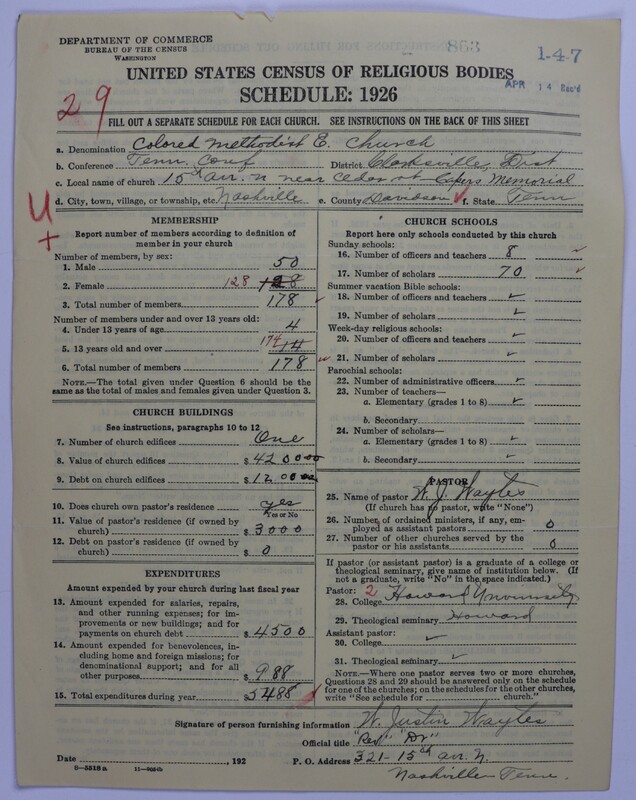 DEPARTMENT OF COMMERCE
BUREAU OF THE CENSUS
WASHINGTON
863
1-4-7
UNITED STATES CENSUS OF RELIGIOUS BODIES
APR 14 Rec'd
SCHEDULE: 1926
29
FILL OUT A SEPARATE SCHEDULE FOR EACH CHURCH. SEE INSTRUCTIONS ON THE BACK OF THIS SHEET
a. Denomination Colored Methodist E. Church
b. Conference Tenn. Conf District Clarksville, Dist
c. Local name of church 15th av. n near Cedar st Capers Memorial
d. City, town, village, or township, etc. Nashville e. County Davidson f. State Tenn
U
+
MEMBERSHIP
Report number of members according to definition of member in your church
Number of members, by sex:
1. Male 50
2. Female 128 128
3. Total number of members 178
Number of members under and over 13 years old:
4. Under 13 years of age 4
5. 13 years old and over 174
6. Total number of members 178
NOTE.—The total given under Question 6 should be the same as the total of males and females given under Question 3.
CHURCH BUILDINGS
See instructions, paragraphs 10 to 12
7. Number of church edifices One
8. Value of church edifices $ 42000
9. Debt on church edifices $ 12000
10. Does church own pastor's residence? yes
Yes or No
11. Value of pastor's residence (if owned by
church) $ 3000
12. Debt on pastor's residence (if owned by
church) $ 0
EXPENDITURES
Amount expended by your church during last fiscal year
13. Amount expended for salaries, repairs,
and other running expenses; for im-
provements or new buildings; and for
payments on church debt $ 4500
14. Amount expended for benevolences, in-
cluding home and foreign missions; for
denominational support; and for all
other purposes $ 988
15. Total expenditures during year $ 5488
CHURCH SCHOOLS
Report here only schools conducted by this church
Sunday schools:
16. Number of officers and teachers 8
17. Number of scholars 70
Summer vacation Bible schools:
18. Number of officers and teachers
19. Number of scholars
Week-day religious schools:
20. Number of officers and teachers
21. Number of scholars
Parochial schools:
22. Number of administrative officers
23. Number of teachers—
a. Elementary (grades 1 to 8)
b. Secondary
24. Number of scholars—
a. Elementary (grades 1 to 8)
b. Secondary
PASTOR
25. Name of pastor W. J. Waytes
(If church has no pastor, write "None")
26. Number of ordained ministers, if any, em-
ployed as assistant pastors 0
27. Number of other churches served by the
pastor or his assistants 0
If pastor (or assistant pastor) is a graduate of a college or
theological seminary, give name of institution below. (If
not a graduate, write "No" in the space indicated.)
Pastor: 2
28. College Howard University
29. Theological seminary Howard
Assistant pastor:
30. College
31. Theological seminary
NOTE.—Where one pastor serves two or more churches,
Questions 28 and 29 should be answered only on the schedule
for one of the churches; on the schedules for the other churches,
write "See schedule for church."
Signature of person furnishing information W. Justin Waytes
Official title "Rev" "Dr"
Date , 192 P. O. Address 321- 15th av. N.
Nashville Tenn.